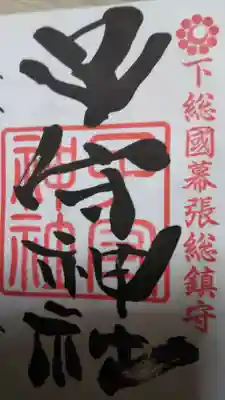 下総國幕張総鎮守
子守神社
子守神社